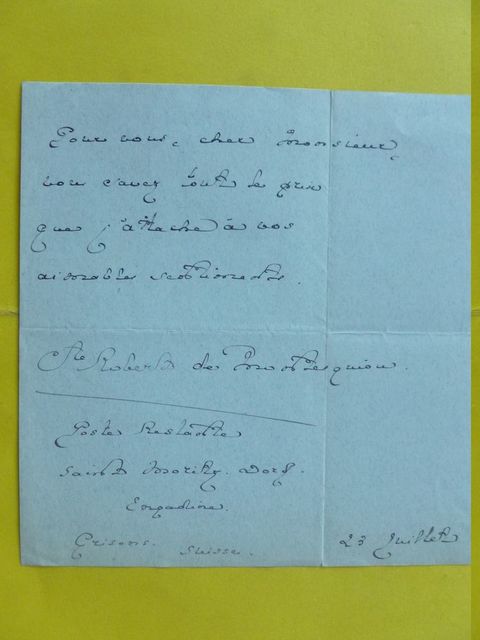 Pour vous, cher Monsieur,
vous savez tout le prix
que j'attache à vos
admirables sentiments.
Cte Robert de Montesquiou.
Poste Restante
Saint Moritz. Dorf.
Engadine.
Grisons. Suisse.
23 Juillet